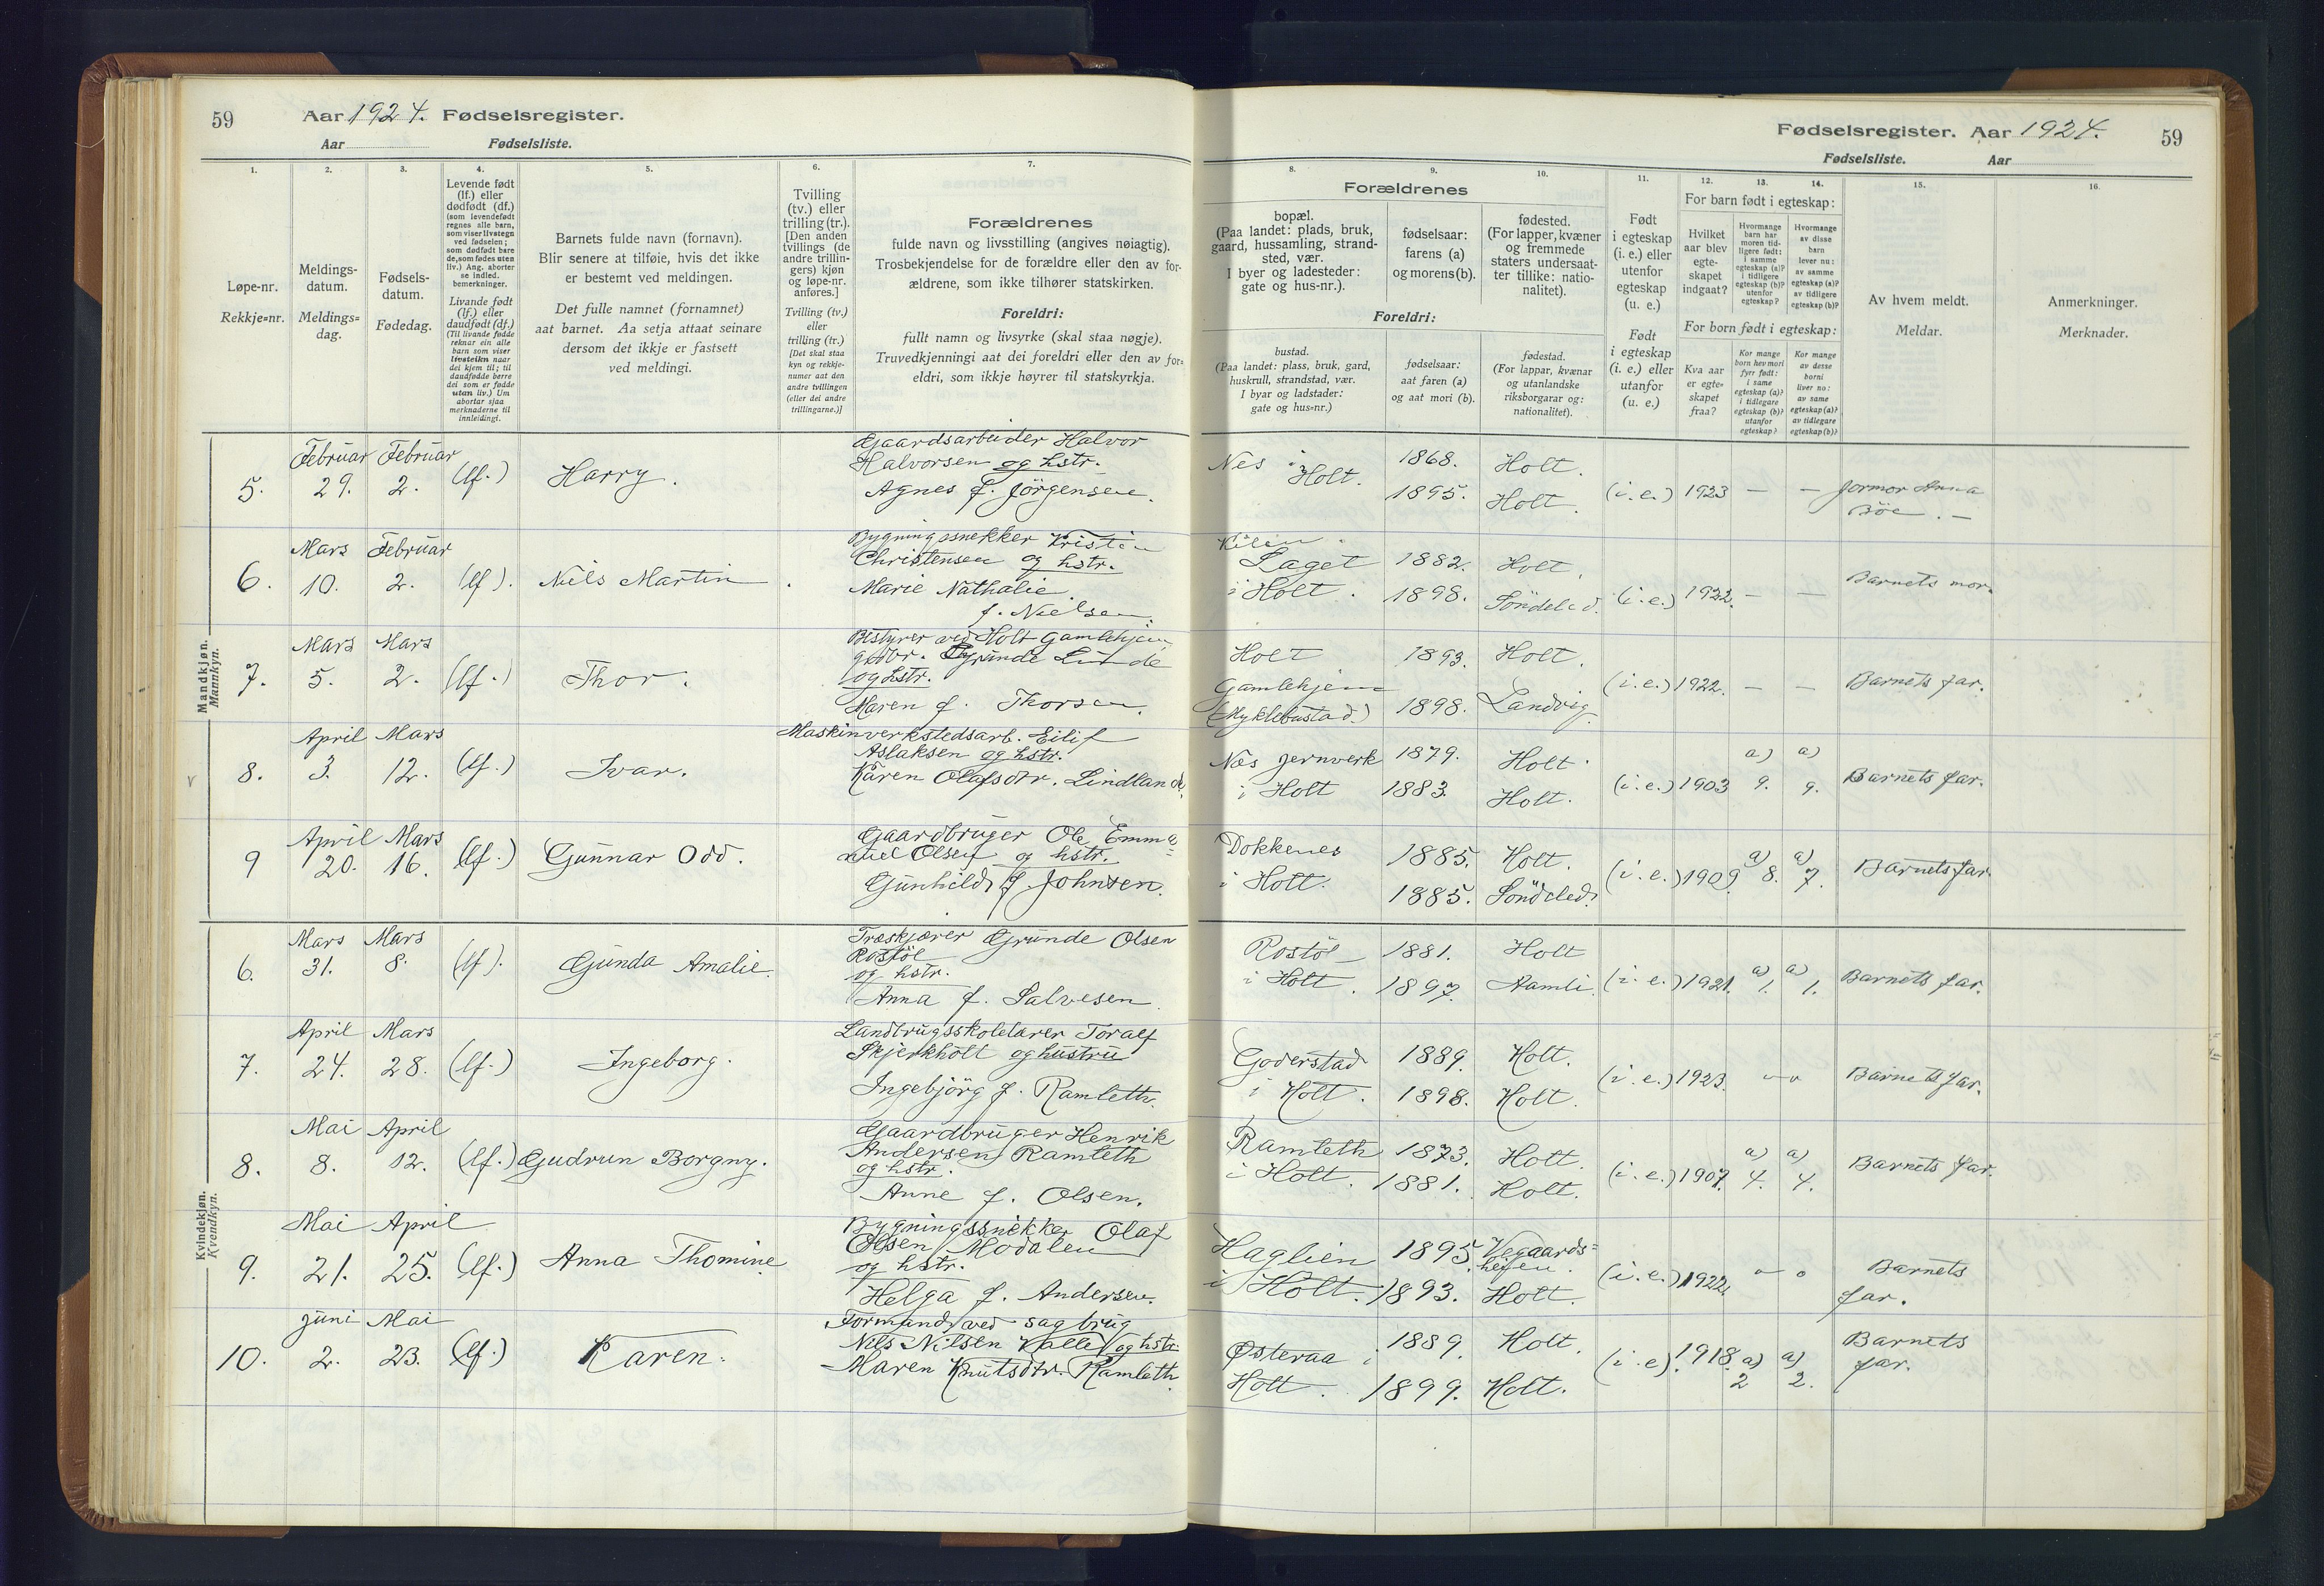 59
Aar 1924. Fødselsregister.
Aar Fødselsliste.
1.
2.
3.
4.
5.
6.
7.
Løpe-nr.
Rekkje=nr.
Meldings-
datum.
Meldings=
dag.
Fødsels-
datum.
Fødedag.
Levende født
(lf.) eller
dødfødt (df.)
(som levendefødt
regnes alle barn,
som viser livstegn
ved fødselen;
som dødfødt bare
de, som fødes uten
liv.) Ang. aborter
se indled.
bemerkninger.
Livande født
(lf.) eller
daudfødt (df.)
(Til livande fødde
reknar ein alle
barn som viser
livsteikn naar
dei kjem til; til
daudfødde berre
dei som er fødde
utan liv.) Um
abortar sjaa
merknaderne til
innleidingi.
Barnets fulde navn (fornavn).
Blir senere at tilføie, hvis det ikke
er bestemt ved meldingen.
Det fulle namnet (fornamnet)
aat barnet. Aa setja attaat seinare
dersom det ikkje er fastsett
ved meldingi.
Tvilling
(tv.) eller
trilling (tr.).
[Den anden
tvillings (de
andre trillin-
gers) kjøn
og løpe-nr.
anføres.]
Tvilling (tv.)
eller
trilling (tr.)
[Det skal staa
kyn og rekkje-
numer aat den
andre tvillingen
(eller dei andre
trillingarne.)]
Forældrenes
fulde navn og livsstilling (angives nøiagtig).
Trosbekjendelse for de forældre eller den av for-
ældrene, som ikke tilhører statskirken.
Foreldri:
fullt namn og livsyrke (skal staa nøgje).
Truvedkjenningi aat dei foreldri eller den av for=
eldri, som ikkje høyrer til statskyrkja.
Mandkjøn.
Mannkyn.
5.
Februar
29.
Februar
2.
(lf.)
Harry.
Gaardsarbeider Halvor
Halvorsen og hstr.
Agnes f. Jörgensen.
6.
Mars
10.
Februar
2.
(lf).
Nils Martin
Bygningssnekker Kristen
Christensen og hstr.
Marie Nathalie
f. Nielsen.
7.
Mars
5.
Mars
2.
(lf.)
Thor.
Bestyrer ved Holt Gamlehjem
gadbr. Grunde Lunde
og hstr.
Maren f. Thorsen.
8.
April
3.
Mars
12.
(lf.)
Ivar.
Maskinverkstedsarb. Eilif
Aslaksen og hstr.
Karen Olafsdtr. Lindland.
9
April
20.
Mars
16.
(lf.)
Gunnar Odd.
Gaardbruger Ole Emma=
nuel Olsen og hstr.
Gunhild f. Johnsen.
Kvindekjøn.
Kvendkyn.
6.
Mars
31.
Mars
8.
(lf).
Gunda Amalie.
Træskjærer Grunde Olsen
Rostöl
og hstr.
Anna f. Salvesen
7.
April
24.
Mars
28.
(lf.)
Ingeborg.
Landbrugsskolelærer Toralf
Skjerkholt og hustru
Ingebjörg f. Ramleth.
8.
Mai
8.
April
12.
(lf.)
Gudrun Borgny.
Gaardbruger Henrik
Andersen Ramleth
og hstr.
Anne f. Olsen.
9.
Mai
21.
April
25.
(lf.)
Anna Thomine
Bygningssnekker Olaf
Olsen Modalen
og hstr.
Helga f. Andersen.
10.
Juni
2.
Mai
23.
(lf.)
Karen.
Formand ved sagbrug
Nils Nilsen Kalley og hstr.
Maren Knutsdtr. Ramleth
Fødselsregister. Aar 1924.
59
Fødselsliste. Aar
8.
9.
10.
11.
12.
13.
14.
15.
16.
Forældrenes
bopæl.
(Paa landet: plads, bruk,
gaard, hussamling, strand-
sted, vær.
I byer og ladesteder:
gate og hus-nr.).
fødselsaar:
farens (a)
og morens (b).
fødested.
(For lapper, kvæner
og fremmede
staters undersaat-
ter tillike: natio-
nalitet).
Foreldri:
bustad.
(Paa landet: plass, bruk, gard,
huskrull, strandstad, vær.
I byar og ladstader:
gate og hus=nr.)
fødselsaar:
aat faren (a)
og aat mori (b).
fødestad.
(For lappar, kvænar
og utanlandske
riksborgarar og:
nationalitet).
Født
i egteskap
(i. e.) eller
utenfor
egteskap
(u. e.)
Født
i egteskap
(i. e.) eller
utanfor
egteskap
(u. e.)
For barn født i egteskap:
Hvilket
aar blev
egte-
skapet
indgaat?
Hvormange
barn har
moren tid-
ligere født:
i samme
egteskap (a)?
i tidligere
egteskap (b)?
utenfor
egteskap?
Hvormange
av disse
barn
lever nu:
av samme
egteskap (a)?
av tidligere
egteskap (b)?
For born født i egteskap:
Kva aar
er egte=
skapet
fraa?
Kor mange
born hev mori
fyrr født:
i same
egteskap (a)?
i tidlegare
egteskap (b)?
utanfor
egteskap?
Kor mange
av desse
borni
liver no:
av same
egteskap (a)?
av tidlegare
egteskap (b)?
Av hvem meldt.
Meldar.
Anmerkninger.
Merknader.
Nes i
Holt.
1868.
1895.
Holt.
Holt.
(i.e.)
1923
—
—
Jormor Anna
Böe. —
Laget
i Holt.
1882.
1898.
Holt.
Söndeled.
(i.e.)
1922.
—
—
Barnets mor.
Holt
Gamlehjem
(Myklebustad.)
1893.
1898.
Holt.
Landvig.
(i.e.)
1922.
—
—
Barnets far.
Næs Jernverk
i Holt
1879.
1883.
Holt.
Holt.
(i.e.)
1903
a)
9.
a)
9.
Barnets far.
Dokkenes
i Holt.
1885.
1885.
Holt.
Söndeled.
(i.e.)
1909
a)
8.
a)
7.
Barnets far.
Rostöl
i Holt.
1881.
1897.
Holt
Aamli.
(i.e.)
1921.
a)
1.
a)
1.
Barnets far.
Goderstad
i Holt.
1889.
1898.
Holt.
Holt.
(i.e.)
1923.
Barnets far.
Ramleth
i Holt.
1873.
1881.
Holt.
Holt.
(i.e.)
1907.
a)
4.
a)
4.
Barnets far.
Haglien
i Holt.
1895.
1893.
Vegaards=
heien.
Holt.
(i.e.)
1922
Barnets
far.
Østeraa i
Holt.
1889.
1899.
Holt.
Holt.
(i.e).
1918.
a)
2
a)
2.
Barnets
far.